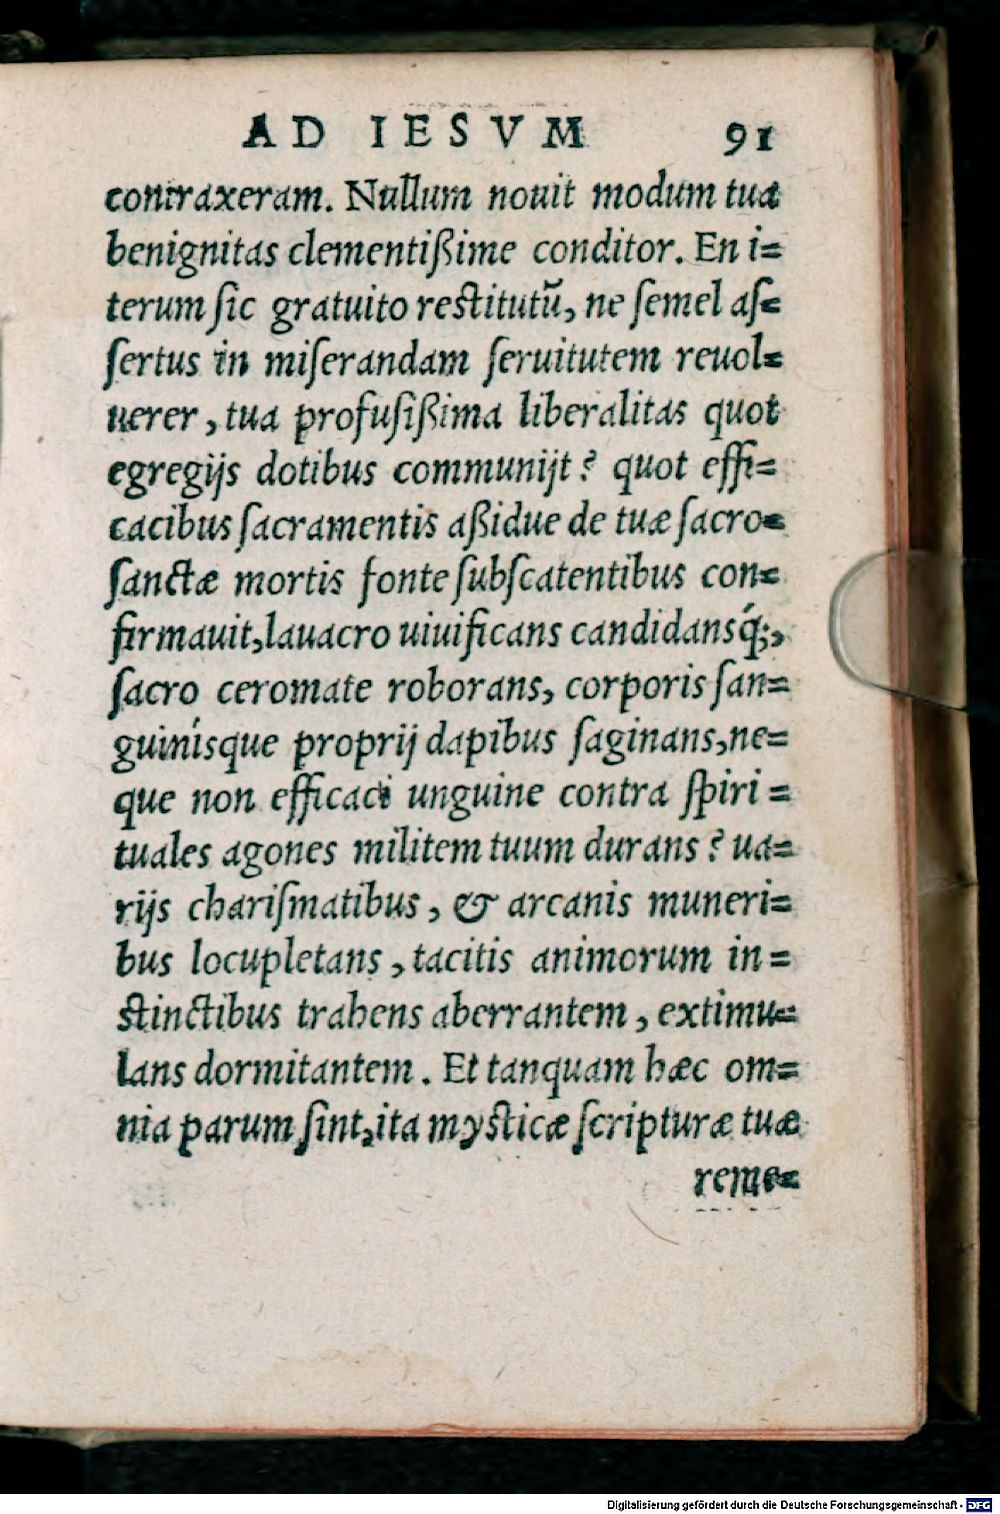 AD IESVM 91
contraxeram. Nullum nouit modum tua
benignitas clementißime conditor. En i=
terum ſic gratuito reſtitutū, ne ſemel aſ=
ſertus in miſerandam ſeruitutem reuol=
uerer, tua profuſißima liberalitas quot
egregijs dotibus communijt? quot effi=
cacibus ſacramentis aßidue de tuæ ſacro=
ſanctæ mortis fonte ſubſcatentibus con=
firmauit, lauacro uiuificans candidansq́;,
ſacro ceromate roborans, corporis ſan=
guinísque proprij dapibus ſaginans, ne=
que non efficaci unguine contra ſpiri=
tuales agones militem tuum durans? ua=
rijs chariſmatibus, & arcanis muneri=
bus locupletans, tacitis animorum in=
ſtinctibus trahens aberrantem, extimu=
lans dormitantem. Et tanquam hæc om=
nia parum ſint, ita myſticæ ſcripturæ tuæ
reme=
Digitalisierung gefördert durch die Deutsche Forschungsgemeinschaft - DFG